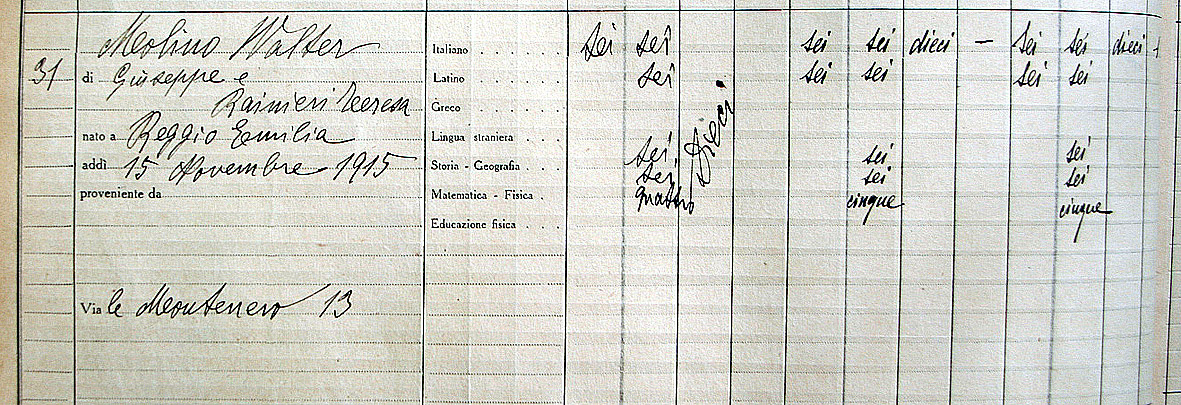 Molino Walter Italiano sei sei sei sei dieci — sei sei dieci
31 di Giuseppe e Latino sei sei sei sei sei
Rainieri Teresa Greco
nato a Reggio Emilia Lingua straniera sei Dieci sei sei
addì 15 Novembre 1915 Storia - Geografia sei sei sei
proveniente da Matematica - Fisica quattro cinque cinque
Educazione fisica
Viale Montenero 13